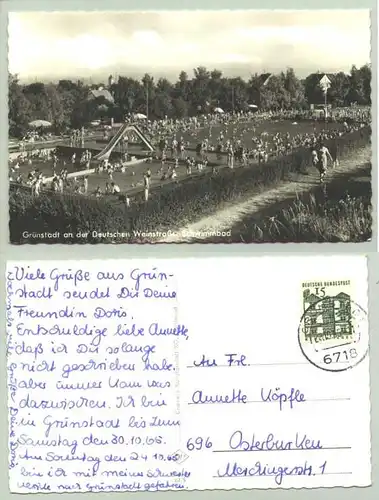 Grünstadt an der Deutschen Weinstraße, Schwimmbad
Viele Grüße aus Grün-
stadt sendet Dir Deine
Freundin Doris.
Entschuldige liebe Annette,
daß ich Dir so lange
nicht geschrieben habe,
aber immer kam was
dazwischen. Ich bin
in Grünstadt bis zum
Samstag den 30.10.66.
Am Sonntag den 24.10.66
bin ich mit meine Schwester
gefahren.
Deine Doris
DEUTSCHE BUNDESPOST
15
6718
An Frl.
Annette Köpfle
696 Osterburken
1